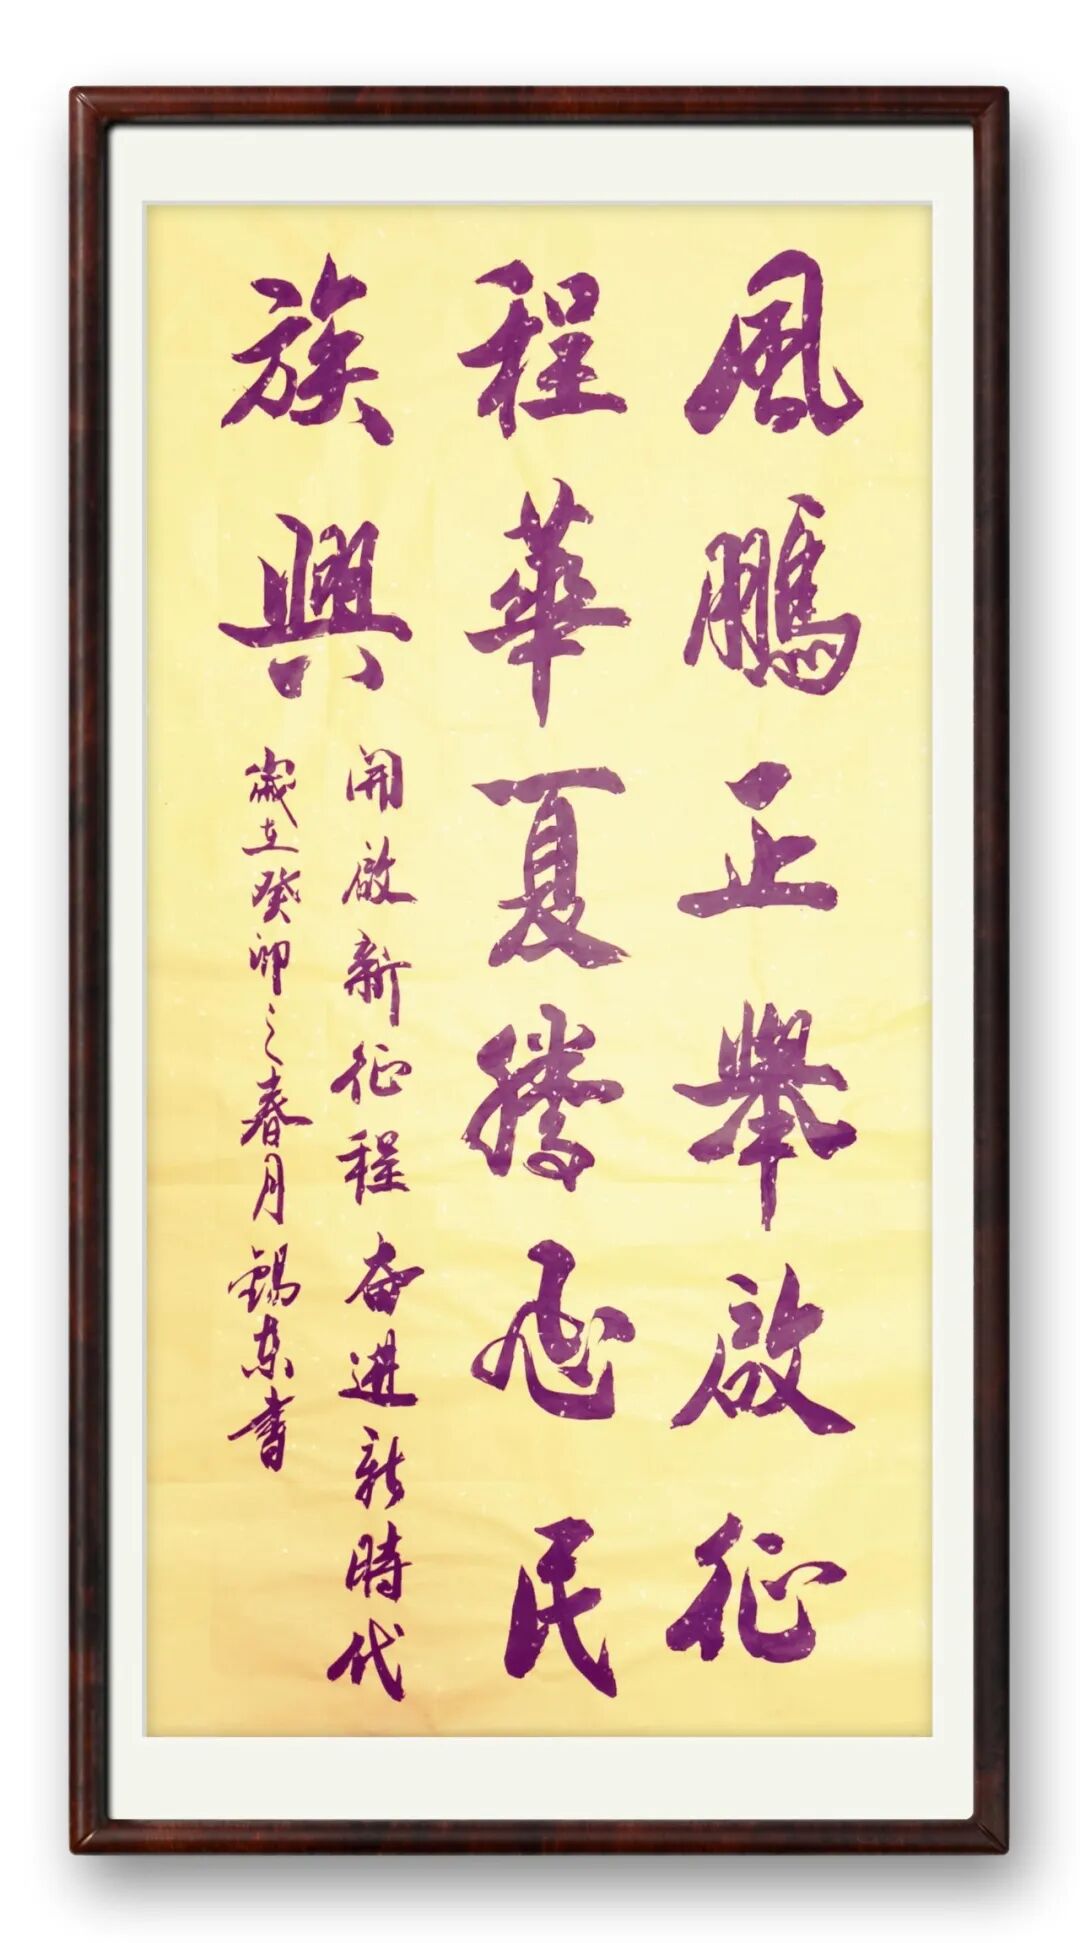 風鵬正舉啟征
程華夏騰飛民
族興
開啟新征程奋进新時代
歲在癸卯之春月錫東書